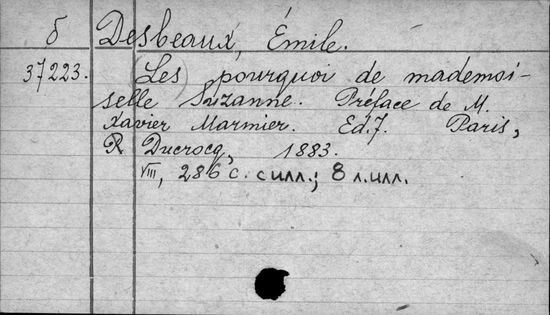 б Desbeaux, Émile.
37223. (Les) pourquoi de mademoi-
selle Suzanne. Préface de M.
Xavier Marmier. Ed. 7. Paris,
P. Ducrocq, 1883.
VIII, 286 с. с илл.; 8 л. илл.